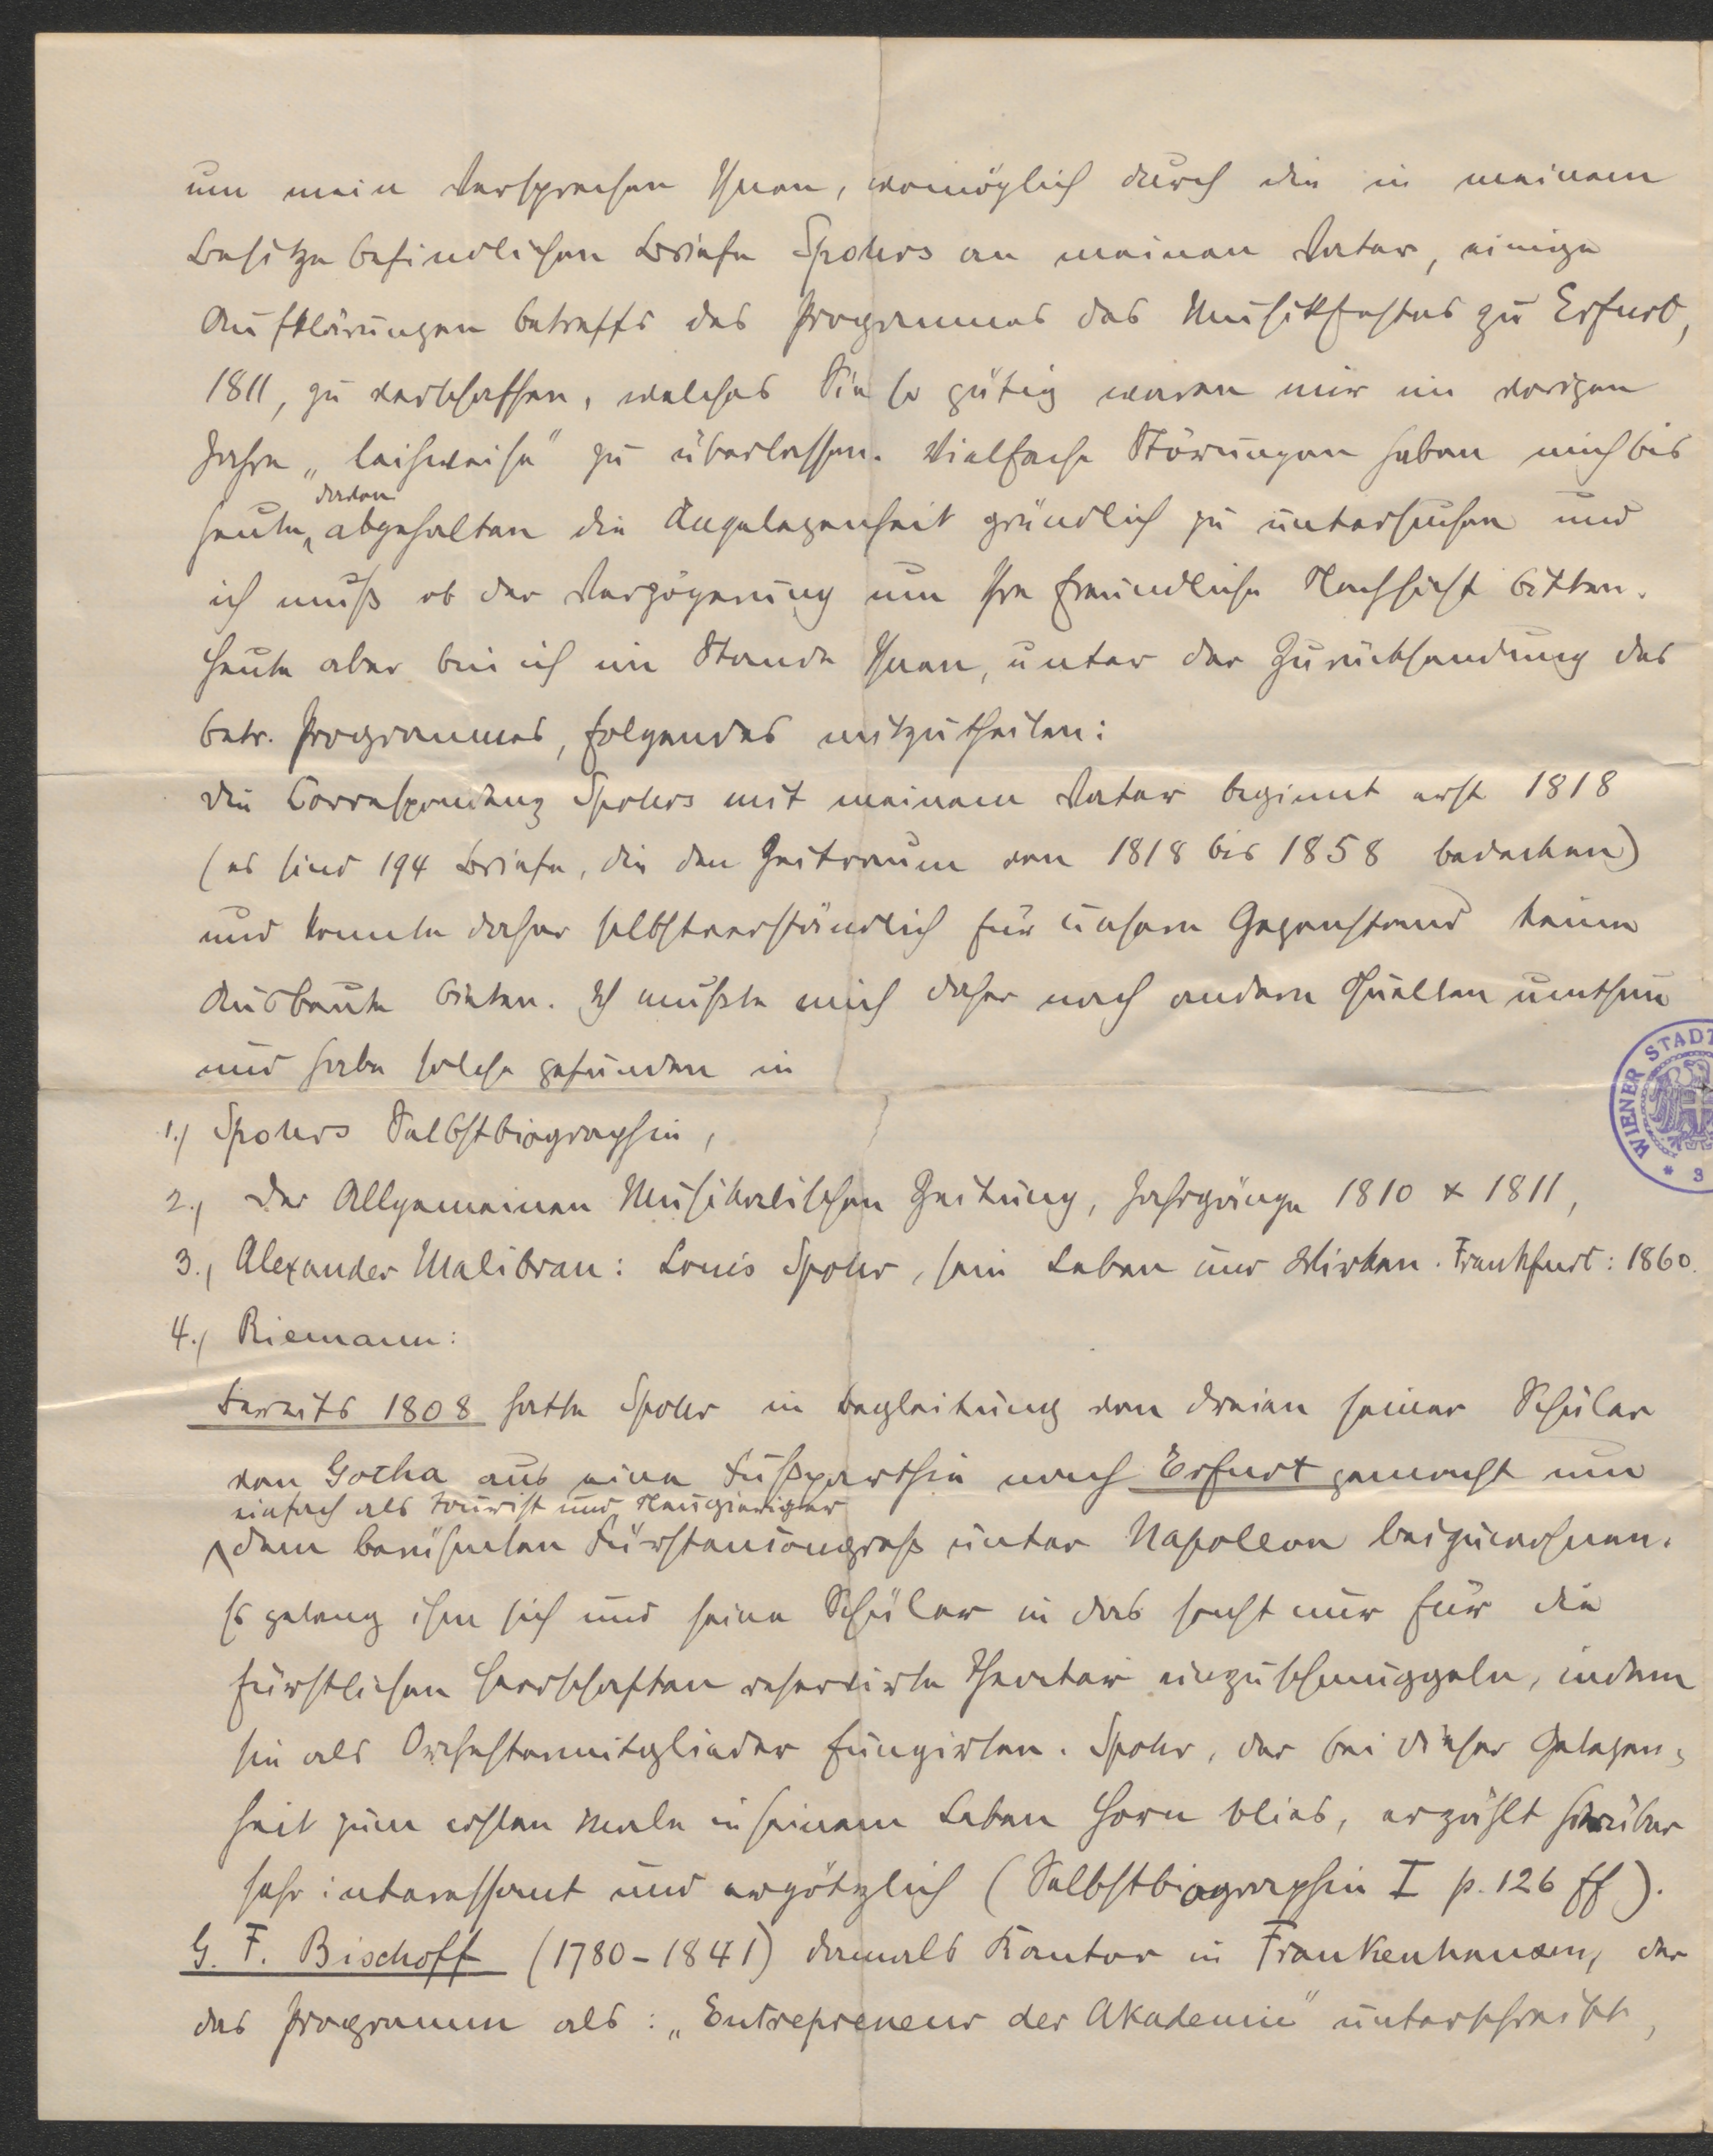 um mein Versprechen Ihnen, womöglich durch die in meinem
Besitze befindlichen Briefe Spohrs an meinen Vater, einige
Aufklärungen betreffs des Programmes des Musikfestes zu Erfurt,
1811, zu verschaffen, welches Sie so gütig waren mir im vorigen
Jahre „leihweise" zu überlassen. Vielfache Störungen haben mich bis
davon
heute abgehalten die Angelegenheit gründlich zu untersuchen und
ich muß ob der Verzögerung um Ihre freundliche Nachsicht bitten.
Heute aber bin ich im Stande Ihnen, unter der Zurücksendung des
betr. Programmes, folgendes mitzutheilen:
Die Correspondenz Spohrs mit meinem Vater beginnt erst 1818
(es sind 194 Briefe, die den Zeitraum von 1818 bis 1858 bedecken)
und konnte daher selbstverständlich für unsern Gegenstand keine
Ausbeute bieten. Ich mußte mich daher nach andern Quellen umthun
und habe solche gefunden in
1.) Spohrs Selbstbiographie,
2., Der Allgemeinen Musikalischen Zeitung, Jahrgänge 1810 & 1811,
3., Alexander Malibran: Louis Spohr, sein Leben und Wirken. Frankfurt: 1860.
4.) Riemann:
Bereits 1808 hatte Spohr in Begleitung von dreien seiner Schüler
von Gotha aus eine Fußparthie nach Erfurt gemacht um
einfach als Tourist und Neugieriger
dem berühmten Fürstencongreß unter Napoleon beizuwohnen.
Es gelang ihm sich und seine Schüler in das sonst nur für die
fürstlichen Herrschaften reservirte Theater einzuschmuggeln, indem
sie als Orchestermitglieder fungirten. Spohr, der bei dieser Gelegen-
heit zum ersten Male in seinem Leben Horn blies, erzählt hierüber
sehr interessant und ergötzlich (Selbstbiographie I p. 126 ff).
G. F. Bischoff (1780-1841) damals Kantor in Frankenhausen, der
das Programm als: „Entrepreneur der Akademie" unterschreibt,
WIENER STADT